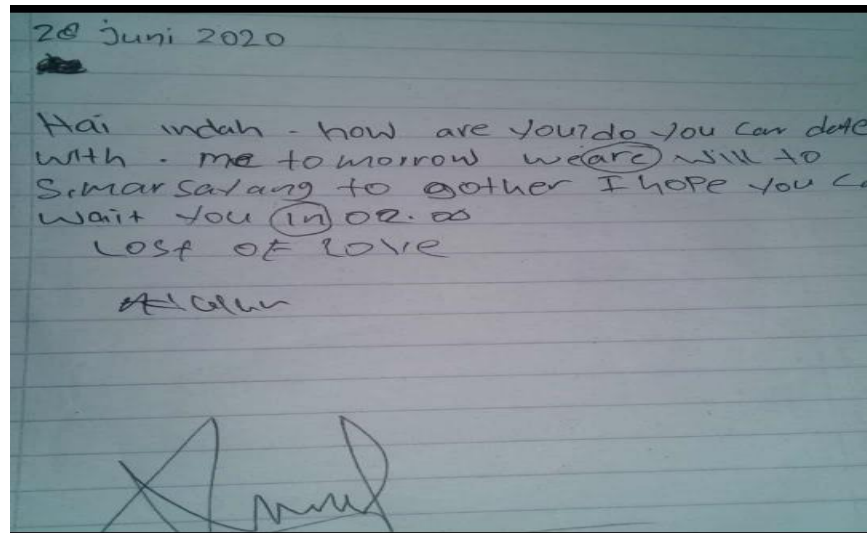 28 Juni 2020
Hai indah - how are you? do you can date
with - me tomorrow we are will to
Simarsayang to gother I hope you
wait you in 02.00
Lost of love